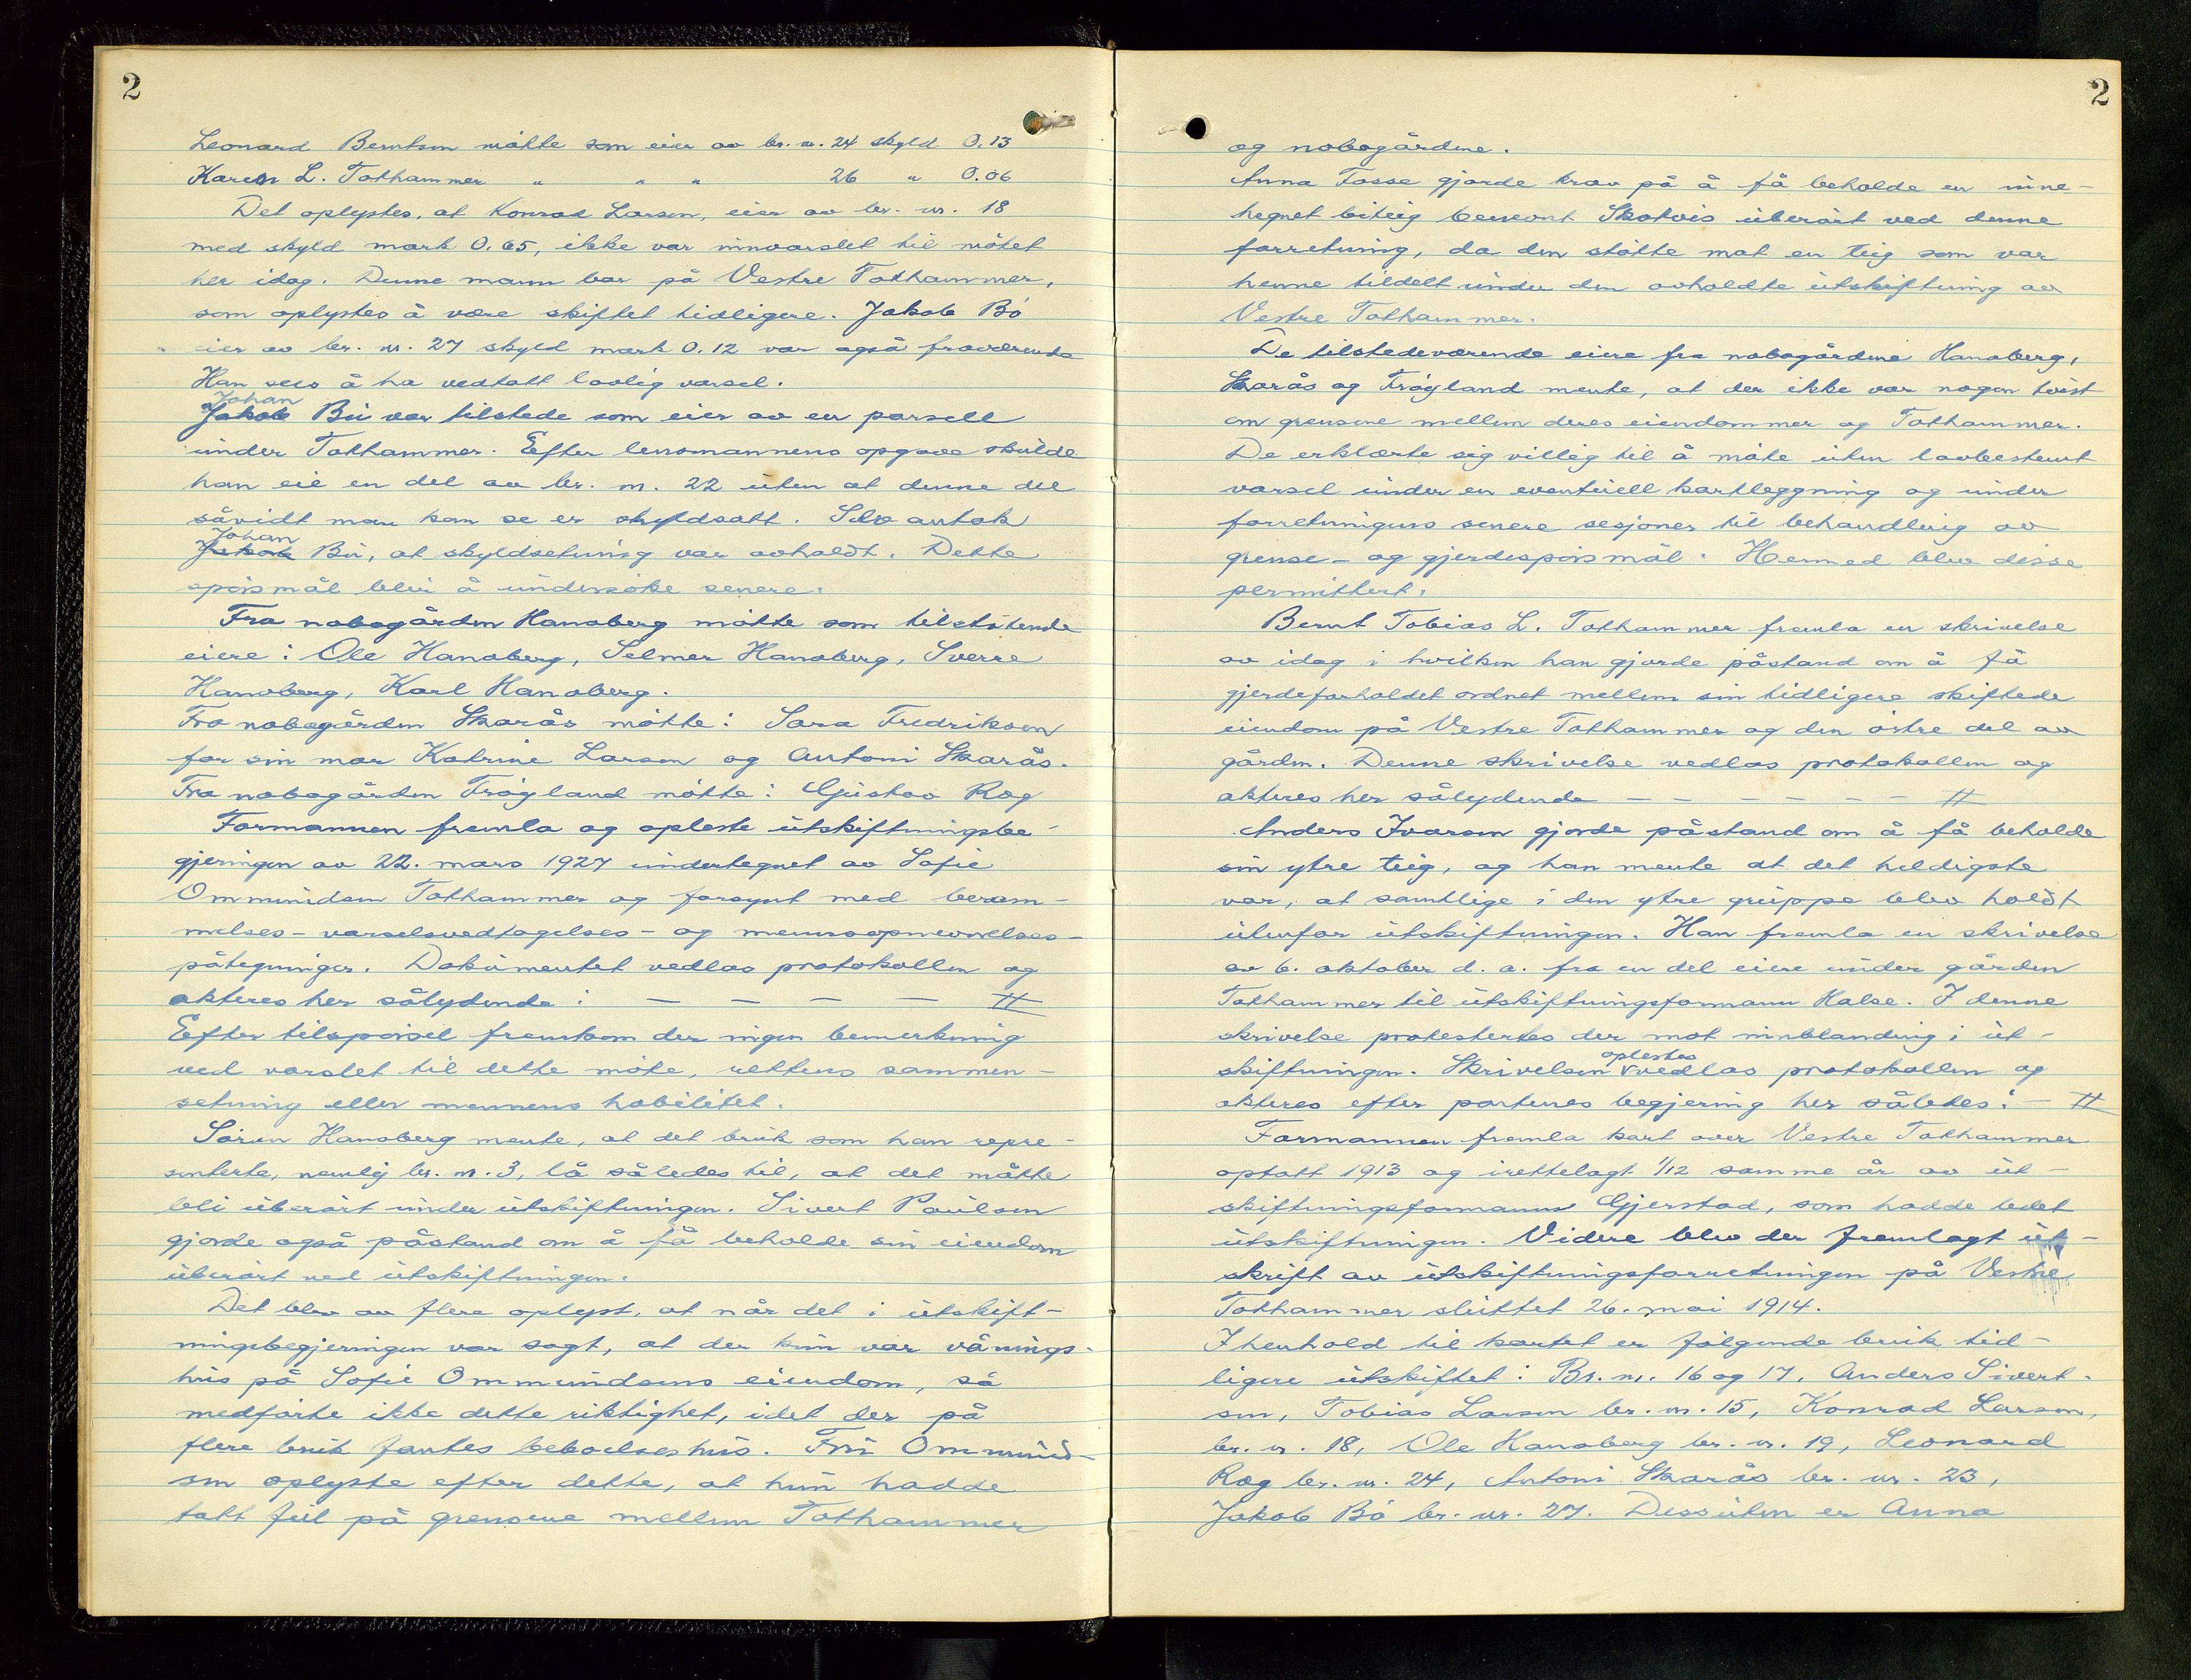 2
Leonard Berntsen møtte som eier av br. nr. 24 skyld 0.13
Karen L. Tothammer " " " 26 " 0.06
Det oplystes, at Konrad Larsen, eier av br. nr. 18
med skyld mark 0.65, ikke var innvarslet til møtet
her idag. Denne mann bor på Vestre Tothammer,
som oplystes å være skiftet tidligere. Jakob Bø
eier av br. nr. 27 skyld mark 0.12 var også fraværende
Han sees å ha vedtatt lovlig varsel.
Johan
Jakob Bu var tilstede som eier av en parsell
under Tothammer. Efter lensmannens opgave skulde
han eie en del av br. nr. 22 uten at denne del
såvidt man kan se er skyldsatt. Selv antok
Johan
Jakob Bu, at skyldsetning var avholdt. Dette
spørsmål blir å undersøke senere.
Fra nabogården Hanaberg møtte som tilstøtende
eiere: Ole Hanaberg, Selmer Hanaberg, Sverre
Hanaberg, Karl Hanaberg.
Fra nabogården Skarås møtte: Sara Fredriksen
for sin mor Katrine Larsen og Antoni Skarås.
Fra nabogården Frøyland møtte: Gustav Røg
Formannen fremla og opleste utskiftningsbe-
gjeringen av 22. mars 1927 undertegnet av Sofie
Ommundsen Tothammer og forsynt med beram-
melses- varselsvedtagelses- og mennsopnevnelses-
påtegninger. Dokumentet vedlas protokollen og
akteres her sålydende: — — — — #
Efter tilspørsel fremkom der ingen bemerkning
ved varslet til dette møte, rettens sammen-
setning eller mennenes habilitet.
Søren Hanaberg mente, at det bruk som han repre-
senterte, nemlig br. nr. 3, lå således til, at det måtte
bli uberørt under utskiftningen. Sivert Paulsen
gjorde også påstand om å få beholde sin eiendom
uberørt ved utskiftningen.
Det blev av flere oplyst, at når det i utskift-
ningsbegjeringen var sagt, at der kun var vånings-
hus på Sofie Ommundsens eiendom, så
medførte ikke dette riktighet, idet der på
flere bruk fantes beboelseshus. Fru Ommund-
sen oplyste efter dette, at hun hadde
tatt feil på grensene mellem Tothammer
2
og nabogårdene.
Anna Fosse gjorde krav på å få beholde en inne-
hegnet biteig benevnt Skotvis uberørt ved denne
forretning, da den støtte mot en teig som var
henne tildelt under den avholdte utskiftning av
Vestre Tothammer.
De tilstedeværende eiere fra nabogårdene Hanaberg,
Skarås og Frøyland mente, at der ikke var nogen tvist
om grensene mellem deres eiendommer og Tothammer.
De erklærte sig villig til å møte uten lovbestemt
varsel under en eventuell kartleggning og under
forretningens senere sesjoner til behandling av
grense- og gjerdespørsmål. Hermed blev disse
permittert.
Bernt Tobias L. Tothammer fremla en skrivelse
av idag i hvilken han gjorde påstand om å få
gjerdeforholdet ordnet mellem sin tidligere skiftede
eiendom på Vestre Tothammer og den østre del av
gården. Denne skrivelse vedlas protokollen og
akteres her sålydende — — — — — — #
Anders Ivarsen gjorde påstand om å få beholde
sin ytre teig, og han mente at det heldigste
var, at samtlige i den ytre gruppe blev holdt
utenfor utskiftningen. Han fremla en skrivelse
av 6. oktober d. a. fra en del eiere under gården
Tothammer til utskiftningsformann Halse. I denne
skrivelse protestertes der mot innblanding i ut-
oplestes
skiftningen. Skrivelsen vedlas protokollen og
akteres efter partenes begjering her således: — #
Formannen fremla kart over Vestre Tothammer
optatt 1913 og irettelagt 1/12 samme år av ut-
skiftningsformann Gjerstad, som hadde ledet
utskiftningen. Videre blev der fremlagt ut-
skrift av utskiftningsforretningen på Vestre
Tothammer sluttet 26. mai 1914.
I henhold til kartet er følgende bruk tid-
ligere utskiftet: Br. nr. 16 og 17, Anders Sivert-
sen, Tobias Larsen br. nr. 15, Konrad Larsen,
br. nr. 18, Ole Hanaberg br. nr. 19, Leonard
Røg br. nr. 24, Antoni Skarås br. nr. 23,
Jakob Bø br. nr. 27. Dessuten er Anna